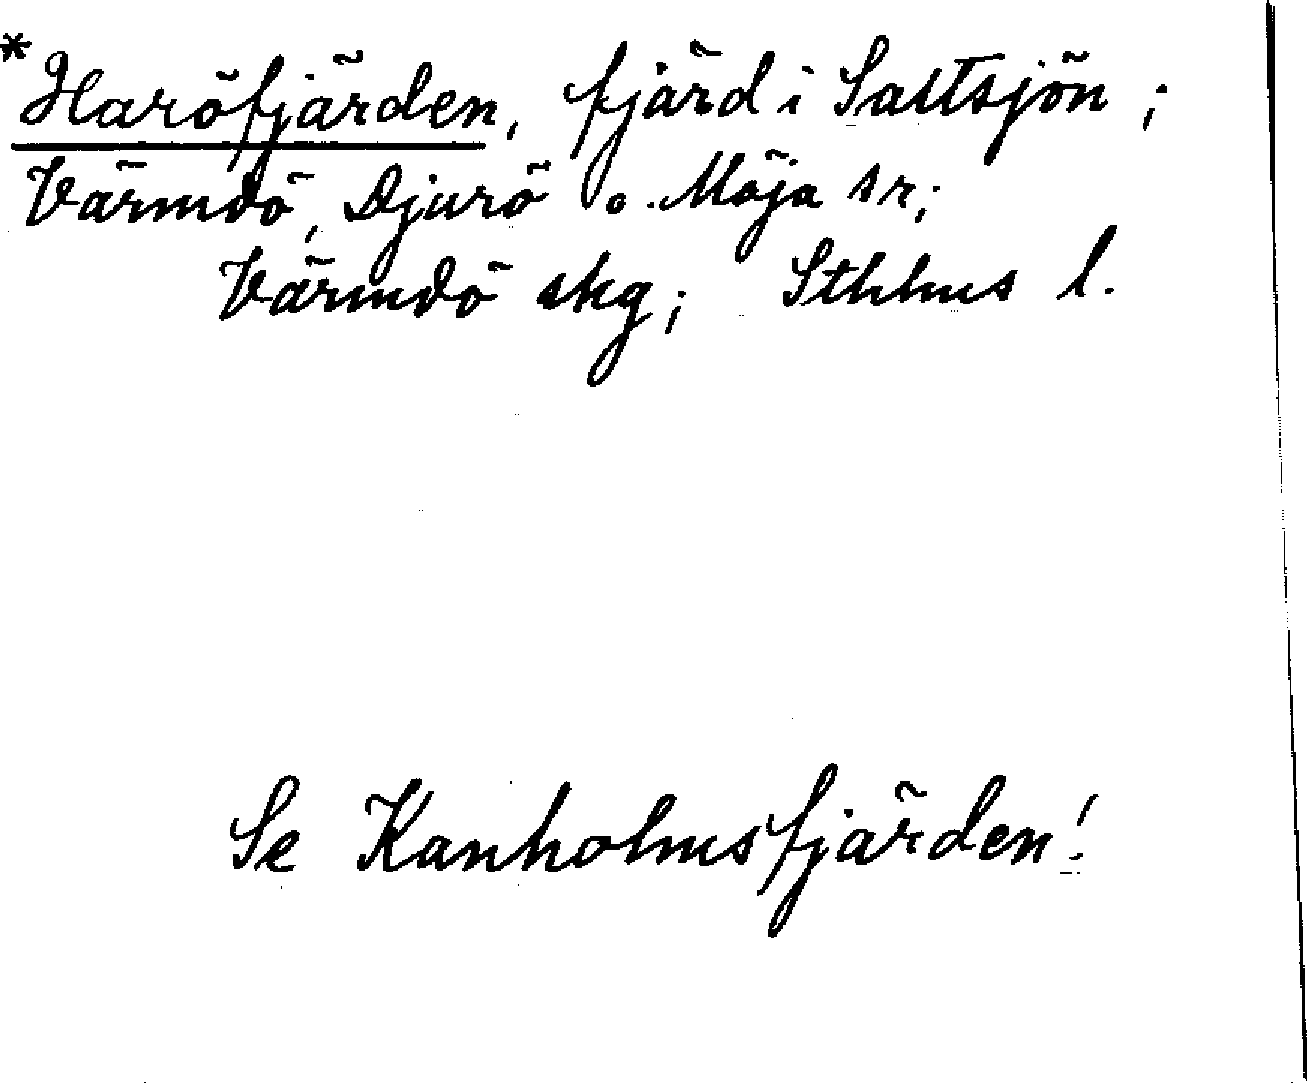 *Haröfjärden, fjärd i Saltsjön;
Värmdö, Djurö o. Möja snr;
Värmdö skg; Sthlms l.
Se Kanholmsfjärden!